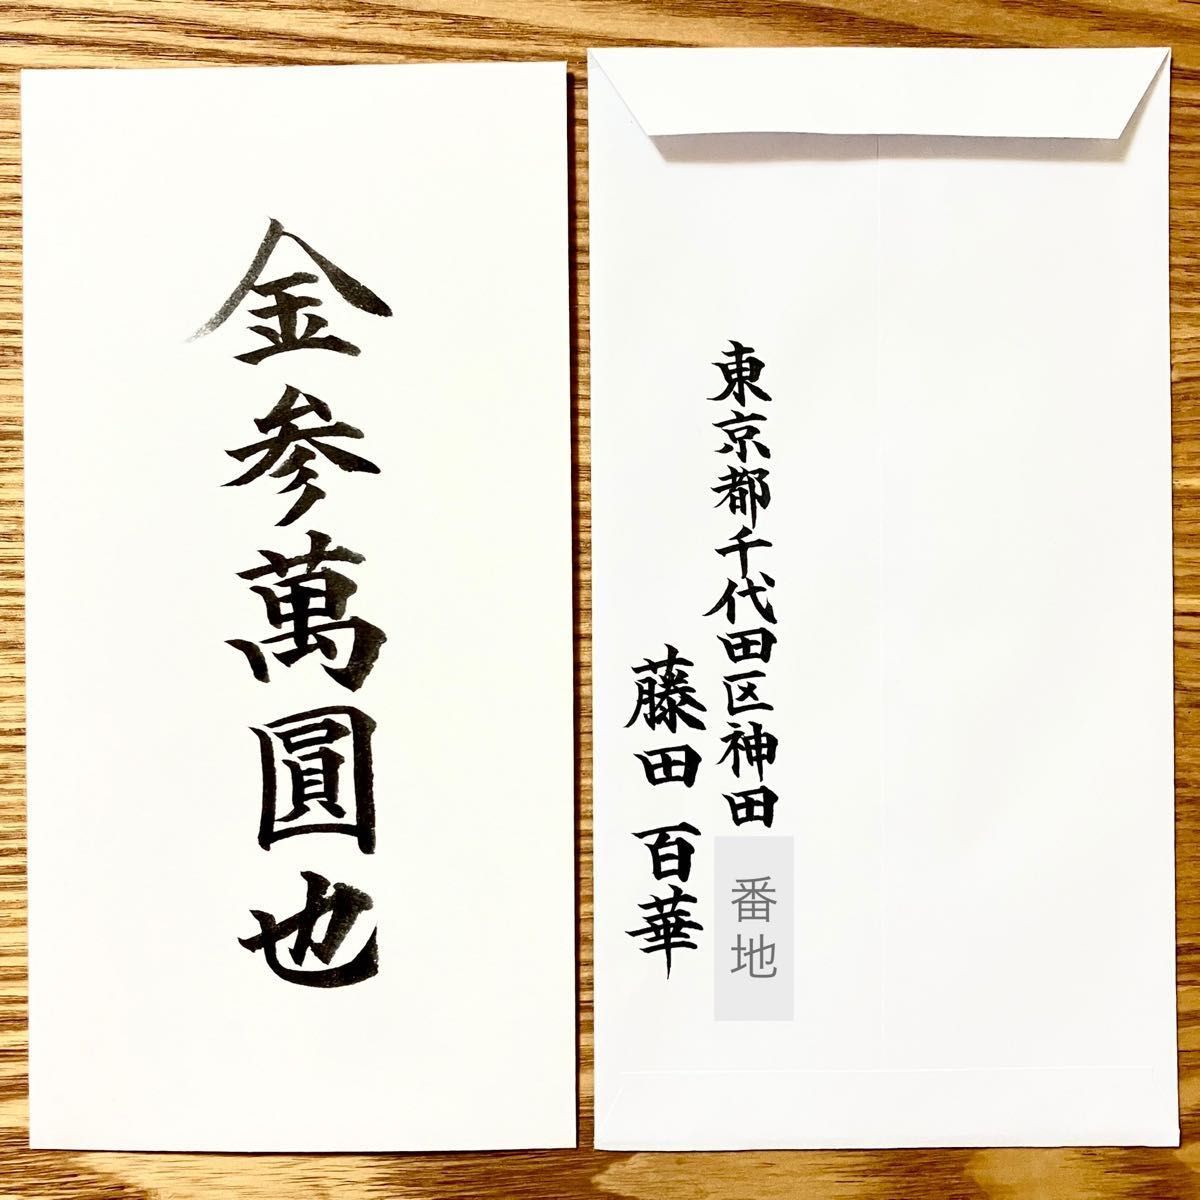 金参萬圓也
東京都千代田区神田
番地
藤田 百華